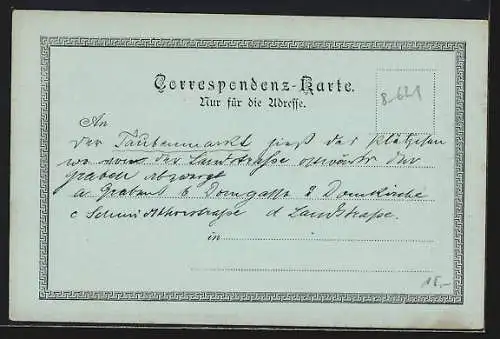 Correspondenz-Karte.
Nur für die Adresse.
8-621
An
Der Taubenmarkt hieß das Plätzchen
wo von der Landstraße ostwärts der
Graben abzweigt
a Graben b Domgasse 2 Domkirche
c Schmidthorstraße d Landstraße.
in
15.-